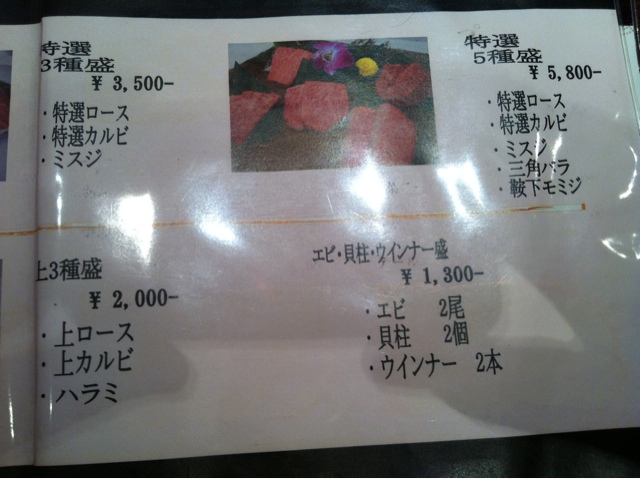 特選
3種盛
¥3,500-
・特選ロース
・特選カルビ
・ミスジ
特選
5種盛
¥5,800-
・特選ロース
・特選カルビ
・ミスジ
・三角バラ
・鞍下モミジ
上3種盛
¥2,000-
・上ロース
・上カルビ
・ハラミ
エビ・貝柱・ウインナー盛
¥1,300-
・エビ 2尾
・貝柱 2個
・ウインナー 2本